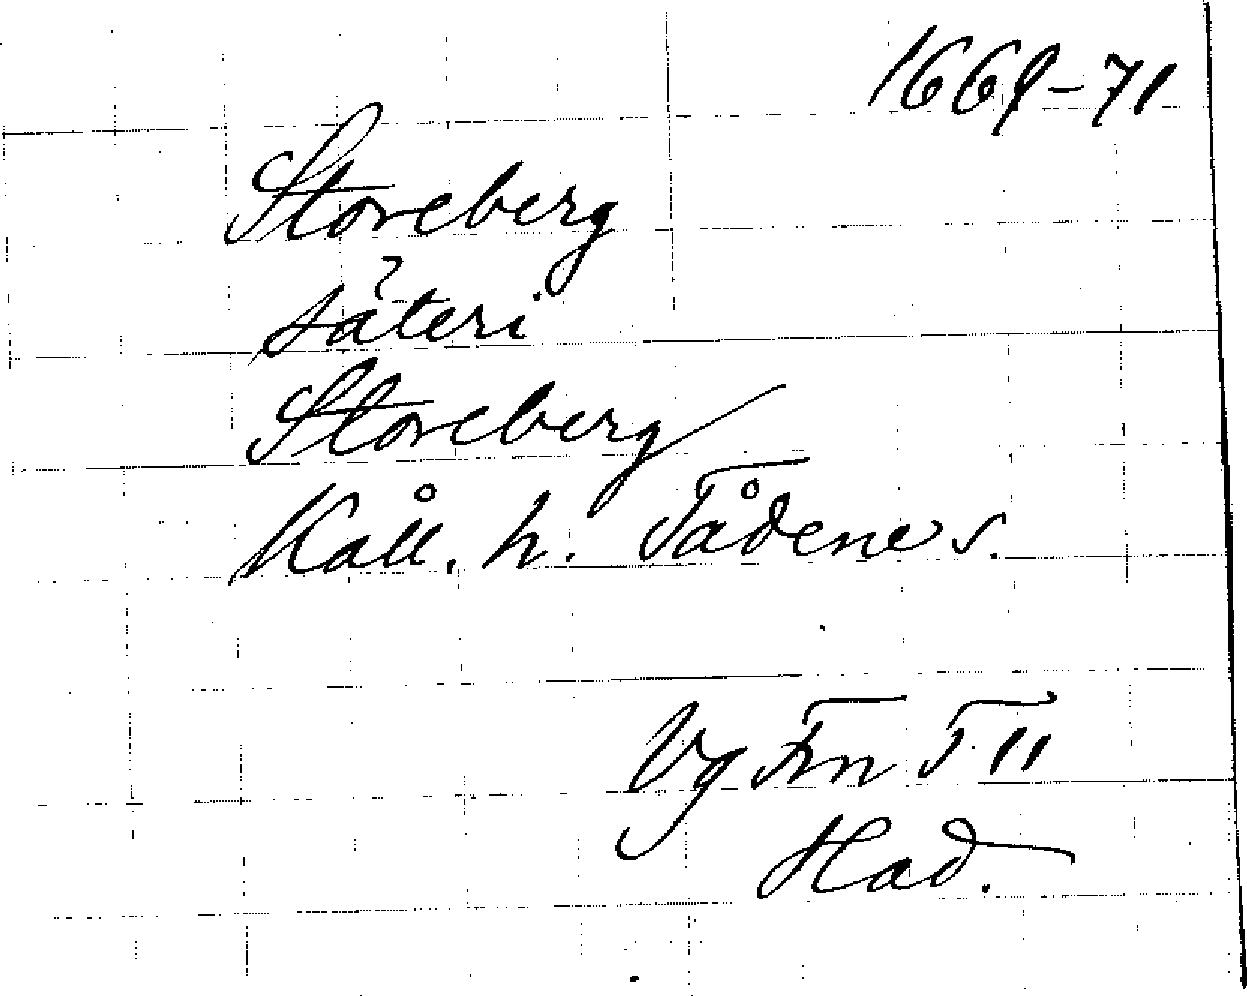 1669-71
Storeberg
säteri
Storeberg
Kåll. h. Tådene s.
Vg Frn T 11
Had.